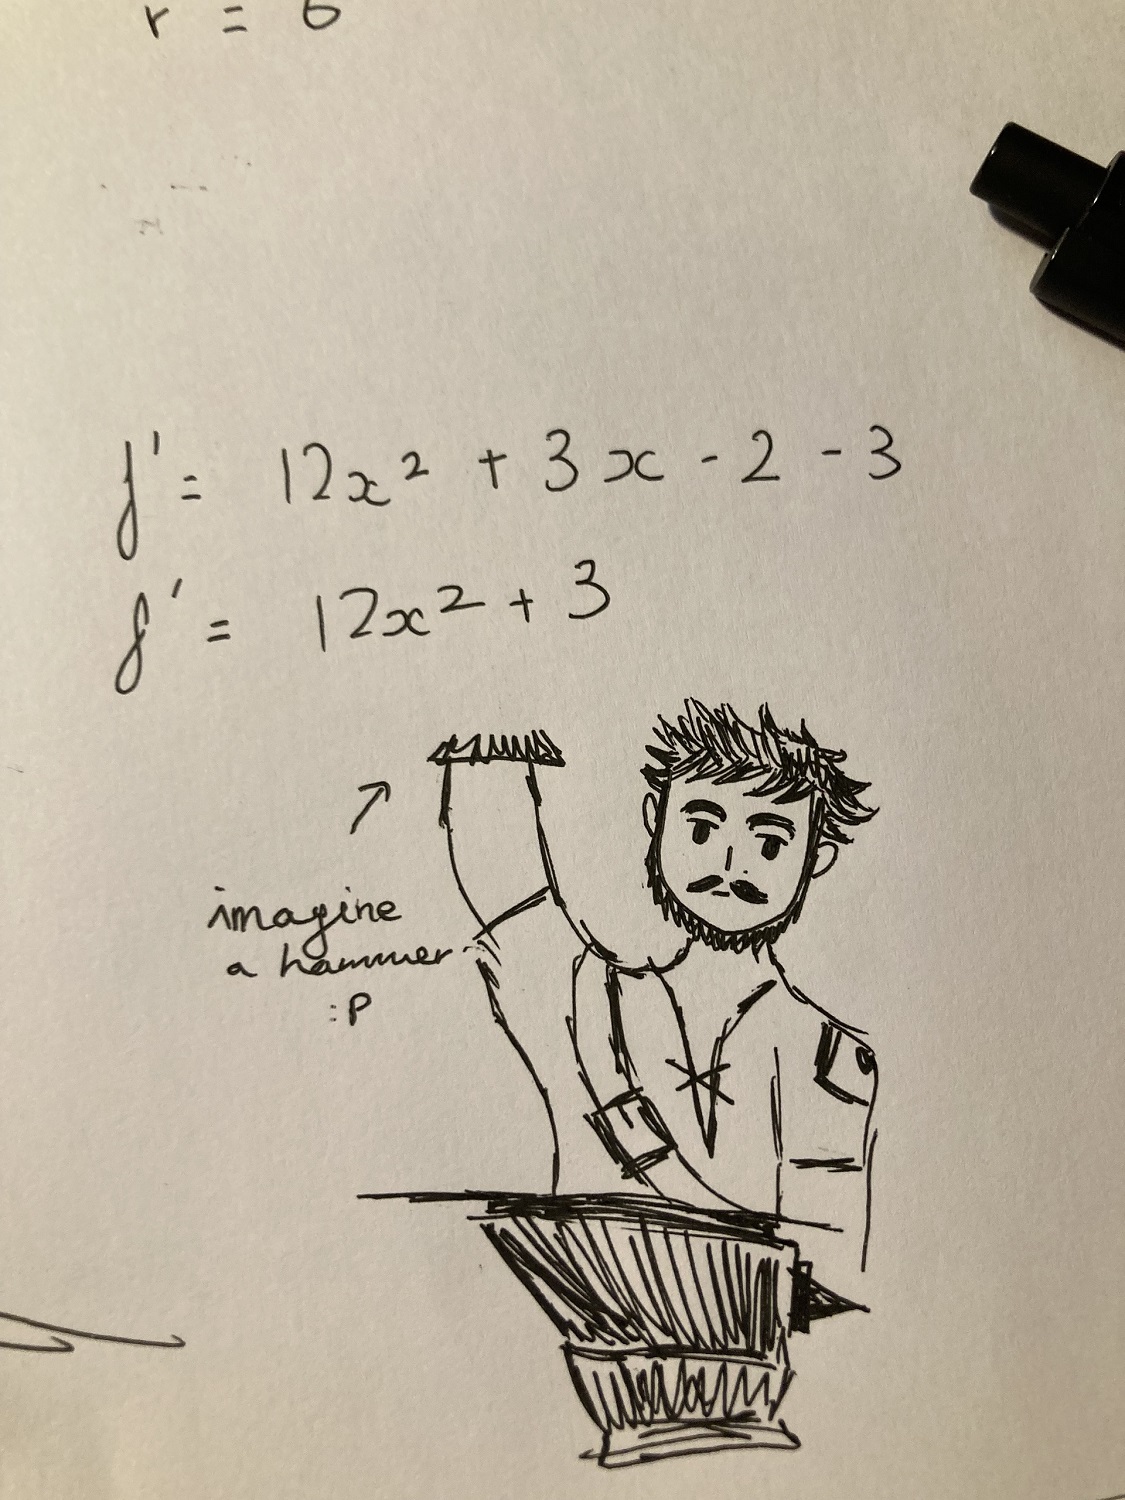 r = 6
f' = 12x² + 3x - 2 - 3
f' = 12x² + 3
imagine
a hammer
:P